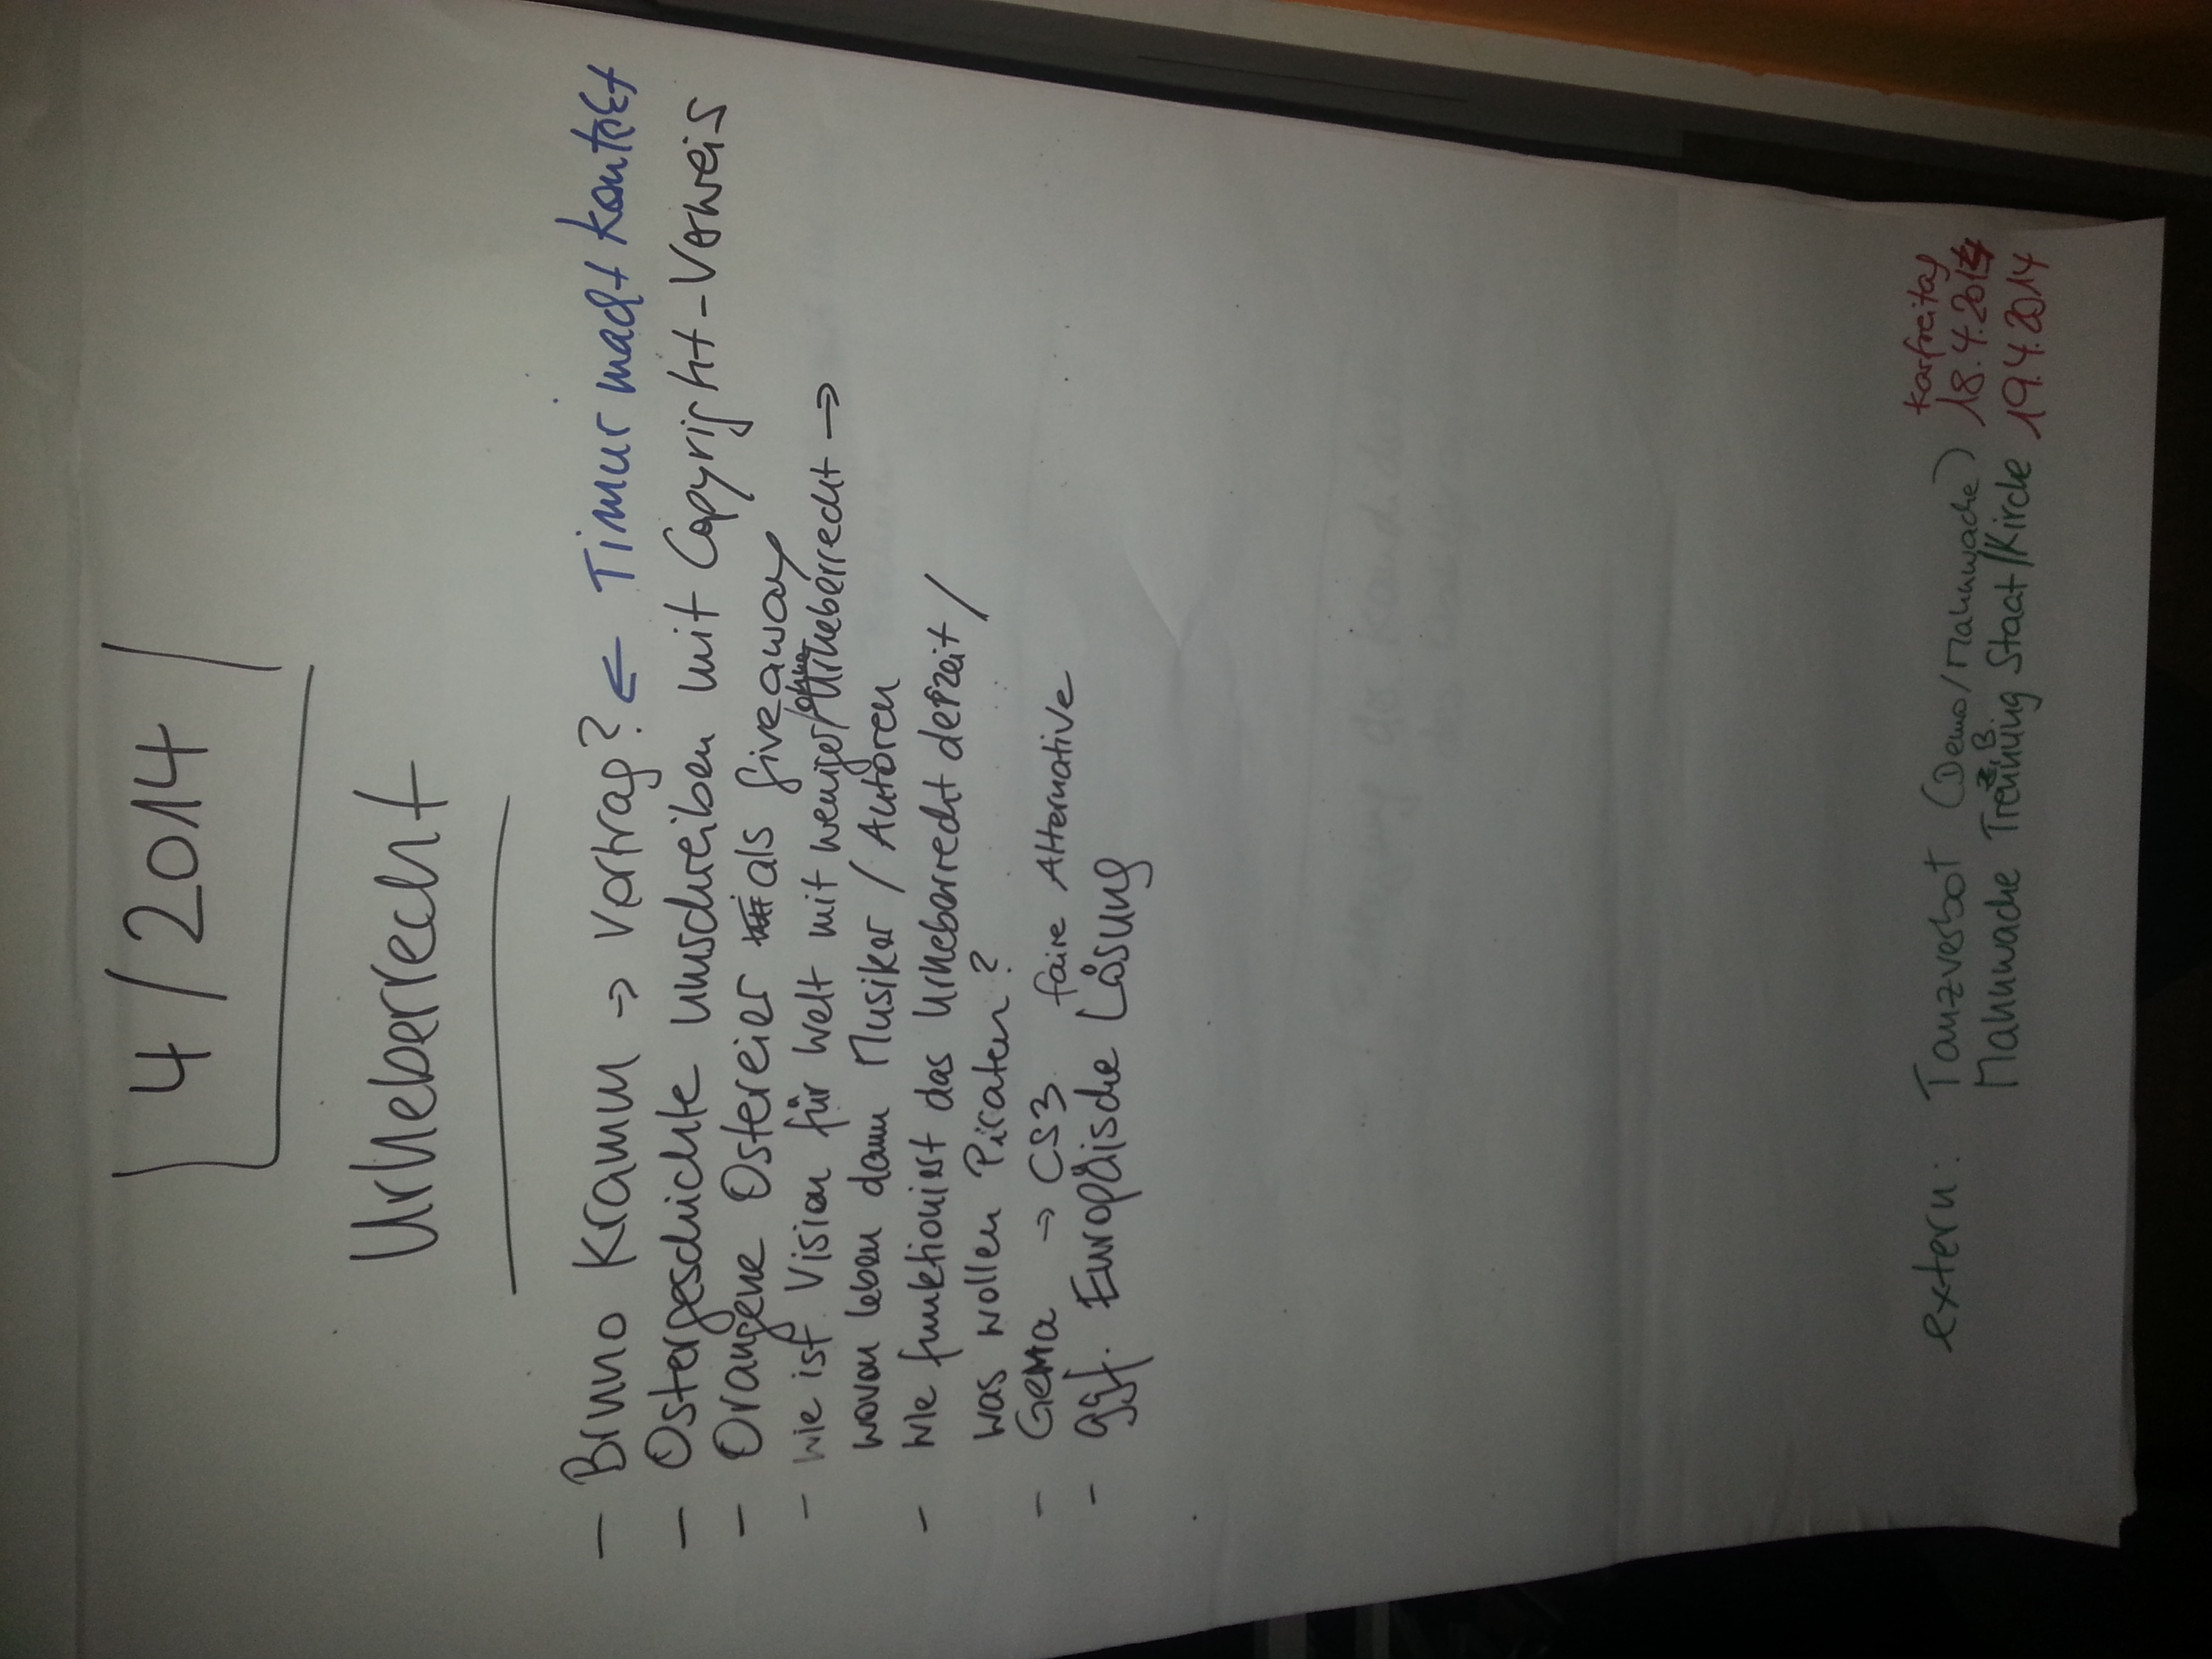 4/2014
Urheberrecht
- Bruno Kramm → Vortrag? ⇐ Timur macht Kontakt
- Ostergeschichte umschreiben mit Copyright-Verweis
- Orangene Ostereier als Giveaway
- wie ist Vision für Welt mit weniger/ohne Urheberrecht →
wovon leben dann Musiker / Autoren
- wie funktioniert das Urheberrecht derzeit /
was wollen Piraten?
- GEMA → CS3 faire Alternative
- ggf. Europäische Lösung
extern: Tanzverbot (Demo/Mahnwache) Karfreitag 18.4.2014
Mahnwache z.B. Trennung Staat/Kirche 19.4.2014